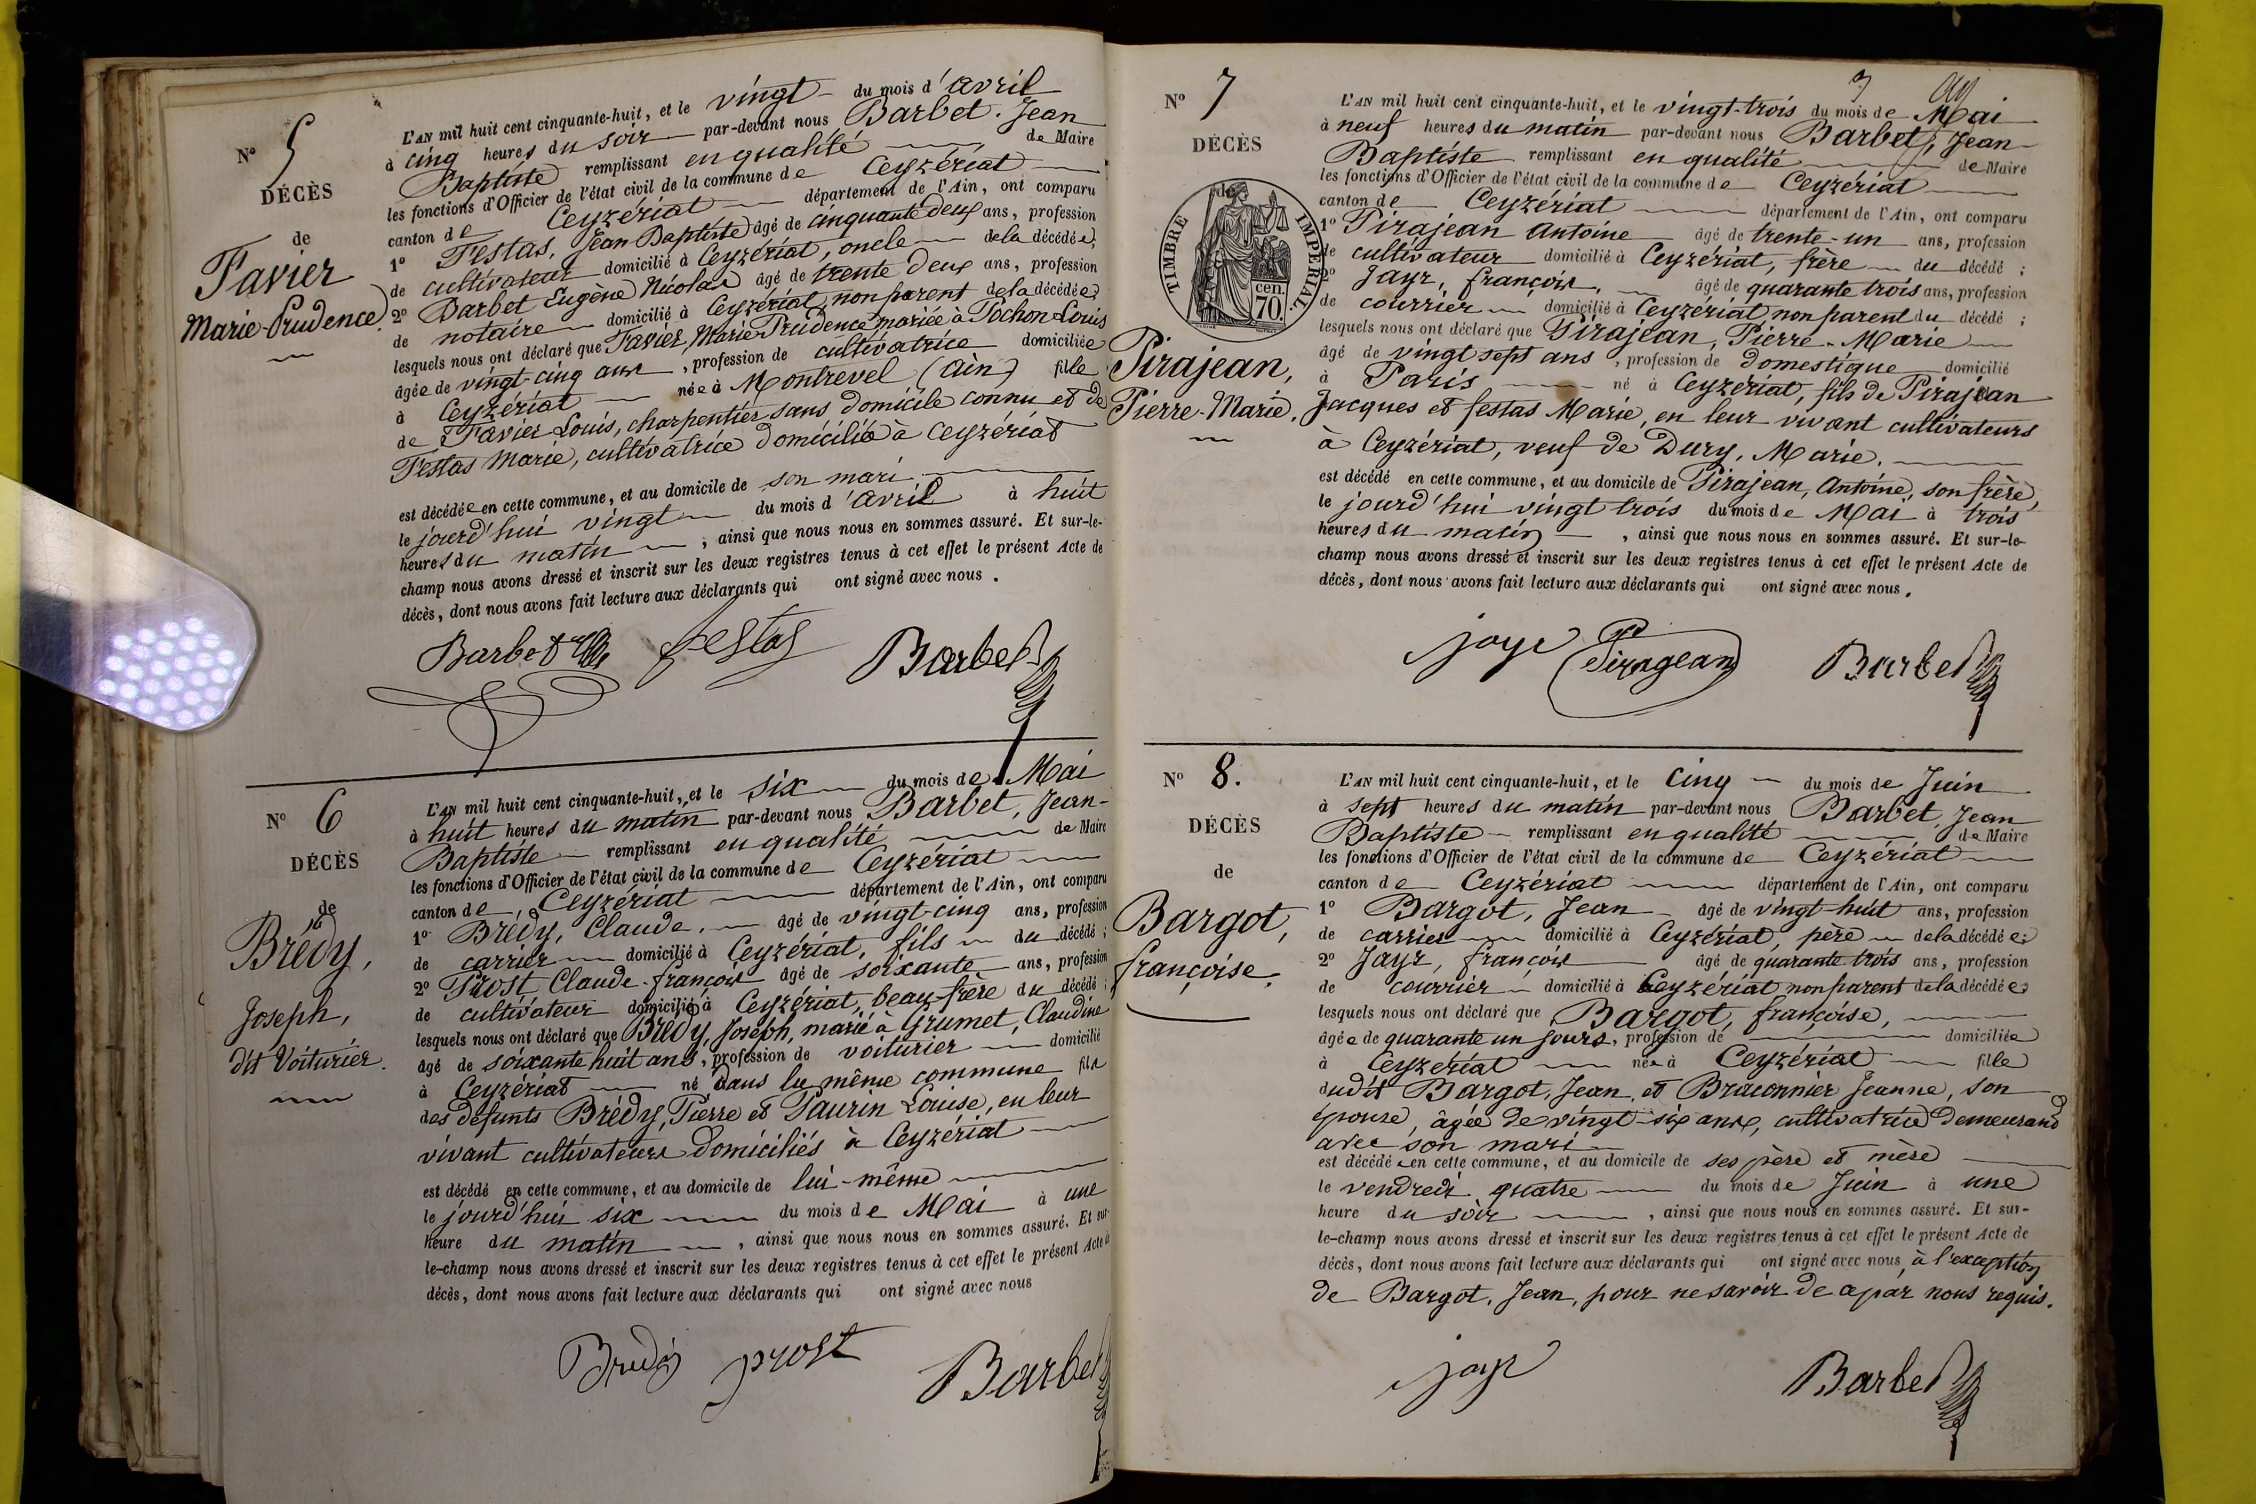 N° 5
DÉCÈS
de
Favier
Marie-Prudence.
L'AN mil huit cent cinquante-huit, et le vingt du mois d'avril
à cinq heures du soir par-devant nous Barbet. Jean
Baptiste remplissant en qualité de Maire
les fonctions d'Officier de l'état civil de la commune de Ceyzériat
canton de Ceyzériat département de l'Ain, ont comparu
1° Festas, Jean Baptiste âgé de cinquante deux ans, profession
de cultivateur domicilié à Ceyzériat, oncle de la décédée;
2° Barbet Eugène Nicolas âgé de trente deux ans, profession
de notaire domicilié à Ceyzériat, non parent de la décédée;
lesquels nous ont déclaré que Favier, Marie Prudence, mariée à Pochon Louis
âgée de vingt-cinq ans, profession de cultivatrice domiciliée
à Ceyzériat née à Montrevel (Ain) fille
de Favier Louis, charpentier sans domicile connu et de
Festas Marie, cultivatrice domiciliée à Ceyzériat
est décédée en cette commune, et au domicile de son mari
le jourd'hui vingt du mois d'avril à huit
heures du matin, ainsi que nous nous en sommes assuré. Et sur-le-
champ nous avons dressé et inscrit sur les deux registres tenus à cet effet le présent Acte de
décès, dont nous avons fait lecture aux déclarants qui ont signé avec nous.
Barbet festas Barbet
N° 6
DÉCÈS
de
Brédy,
Joseph,
dit Voiturier.
L'AN mil huit cent cinquante-huit, et le six du mois de Mai
à huit heures du matin par-devant nous Barbet, Jean-
Baptiste remplissant en qualité de Maire
les fonctions d'Officier de l'état civil de la commune de Ceyzériat
canton de Ceyzériat département de l'Ain, ont comparu
1° Brédy, Claude, âgé de vingt-cinq ans, profession
de carrier domicilié à Ceyzériat, fils du décédé;
2° Prost Claude-françois âgé de soixante ans, profession
de cultivateur domicilié à Ceyzériat, beau-frère du décédé;
lesquels nous ont déclaré que Brédy, Joseph, marié à Grumet, Claudine
âgé de soixante huit ans, profession de voiturier domicilié
à Ceyzériat né dans la même commune fils
des défunts Brédy, Pierre et Paurin Louise, en leur
vivant cultivateurs domiciliés à Ceyzériat
est décédé en cette commune, et au domicile de lui-même
le jourd'hui six du mois de Mai à une
heure du matin, ainsi que nous nous en sommes assuré. Et sur-
le-champ nous avons dressé et inscrit sur les deux registres tenus à cet effet le présent Acte de
décès, dont nous avons fait lecture aux déclarants qui ont signé avec nous
Brédy prost Barbet
7
N° 7
DÉCÈS
de
TIMBRE IMPÉRIAL.
cen.
70.
Pirajean,
Pierre-Marie.
L'AN mil huit cent cinquante-huit, et le vingt-trois du mois de Mai
à neuf heures du matin par-devant nous Barbet, Jean
Baptiste remplissant en qualité de Maire
les fonctions d'Officier de l'état civil de la commune de Ceyzériat
canton de Ceyzériat département de l'Ain, ont comparu
1° Pirajean Antoine âgé de trente-un ans, profession
de cultivateur domicilié à Ceyzériat, frère du décédé;
2° Jayr, françois, âgé de quarante trois ans, profession
de courrier domicilié à Ceyzériat non parent du décédé;
lesquels nous ont déclaré que Pirajean, Pierre-Marie
âgé de vingt sept ans, profession de domestique domicilié
à Paris né à Ceyzériat, fils de Pirajean
Jacques et festas Marie, en leur vivant cultivateurs
à Ceyzériat, veuf de Dury, Marie.
est décédé en cette commune, et au domicile de Pirajean, Antoine, son frère,
le jourd'hui vingt trois du mois de Mai à trois
heures du matin, ainsi que nous nous en sommes assuré. Et sur-le-
champ nous avons dressé et inscrit sur les deux registres tenus à cet effet le présent Acte de
décès, dont nous avons fait lecture aux déclarants qui ont signé avec nous.
jayr Piragean Barbet
N° 8.
DÉCÈS
de
Bargot,
françoise.
L'AN mil huit cent cinquante-huit, et le cinq du mois de Juin
à sept heures du matin par-devant nous Barbet, Jean
Baptiste remplissant en qualité de Maire
les fonctions d'Officier de l'état civil de la commune de Ceyzériat
canton de Ceyzériat département de l'Ain, ont comparu
1° Bargot, Jean âgé de vingt-huit ans, profession
de carrier domicilié à Ceyzériat, père de la décédée;
2° Jayr, françois âgé de quarante trois ans, profession
de courrier domicilié à Ceyzériat non parent de la décédée;
lesquels nous ont déclaré que Bargot, françoise,
âgée de quarante un jours, profession de domiciliée
à Ceyzériat née à Ceyzériat fille
dudit Bargot, Jean, et Braconnier Jeanne, son
épouse, âgée de vingt-six ans, cultivatrice demeurand
avec son mari
est décédée en cette commune, et au domicile de ses père et mère
le vendredi quatre du mois de Juin à une
heure du soir, ainsi que nous nous en sommes assuré. Et sur-
le-champ nous avons dressé et inscrit sur les deux registres tenus à cet effet le présent Acte de
décès, dont nous avons fait lecture aux déclarants qui ont signé avec nous, à l'exception
de Bargot, Jean, pour ne savoir de a par nous requis.
jayr Barbet